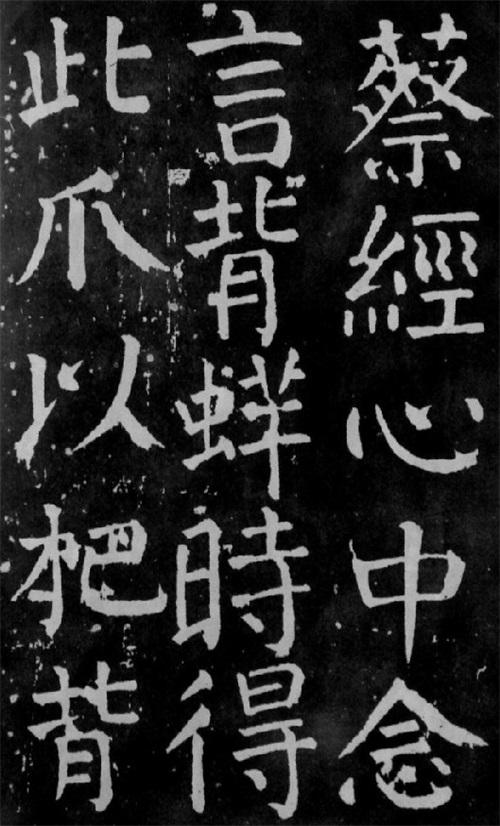 蔡經心中念
言背蛘時得
此爪以杷背